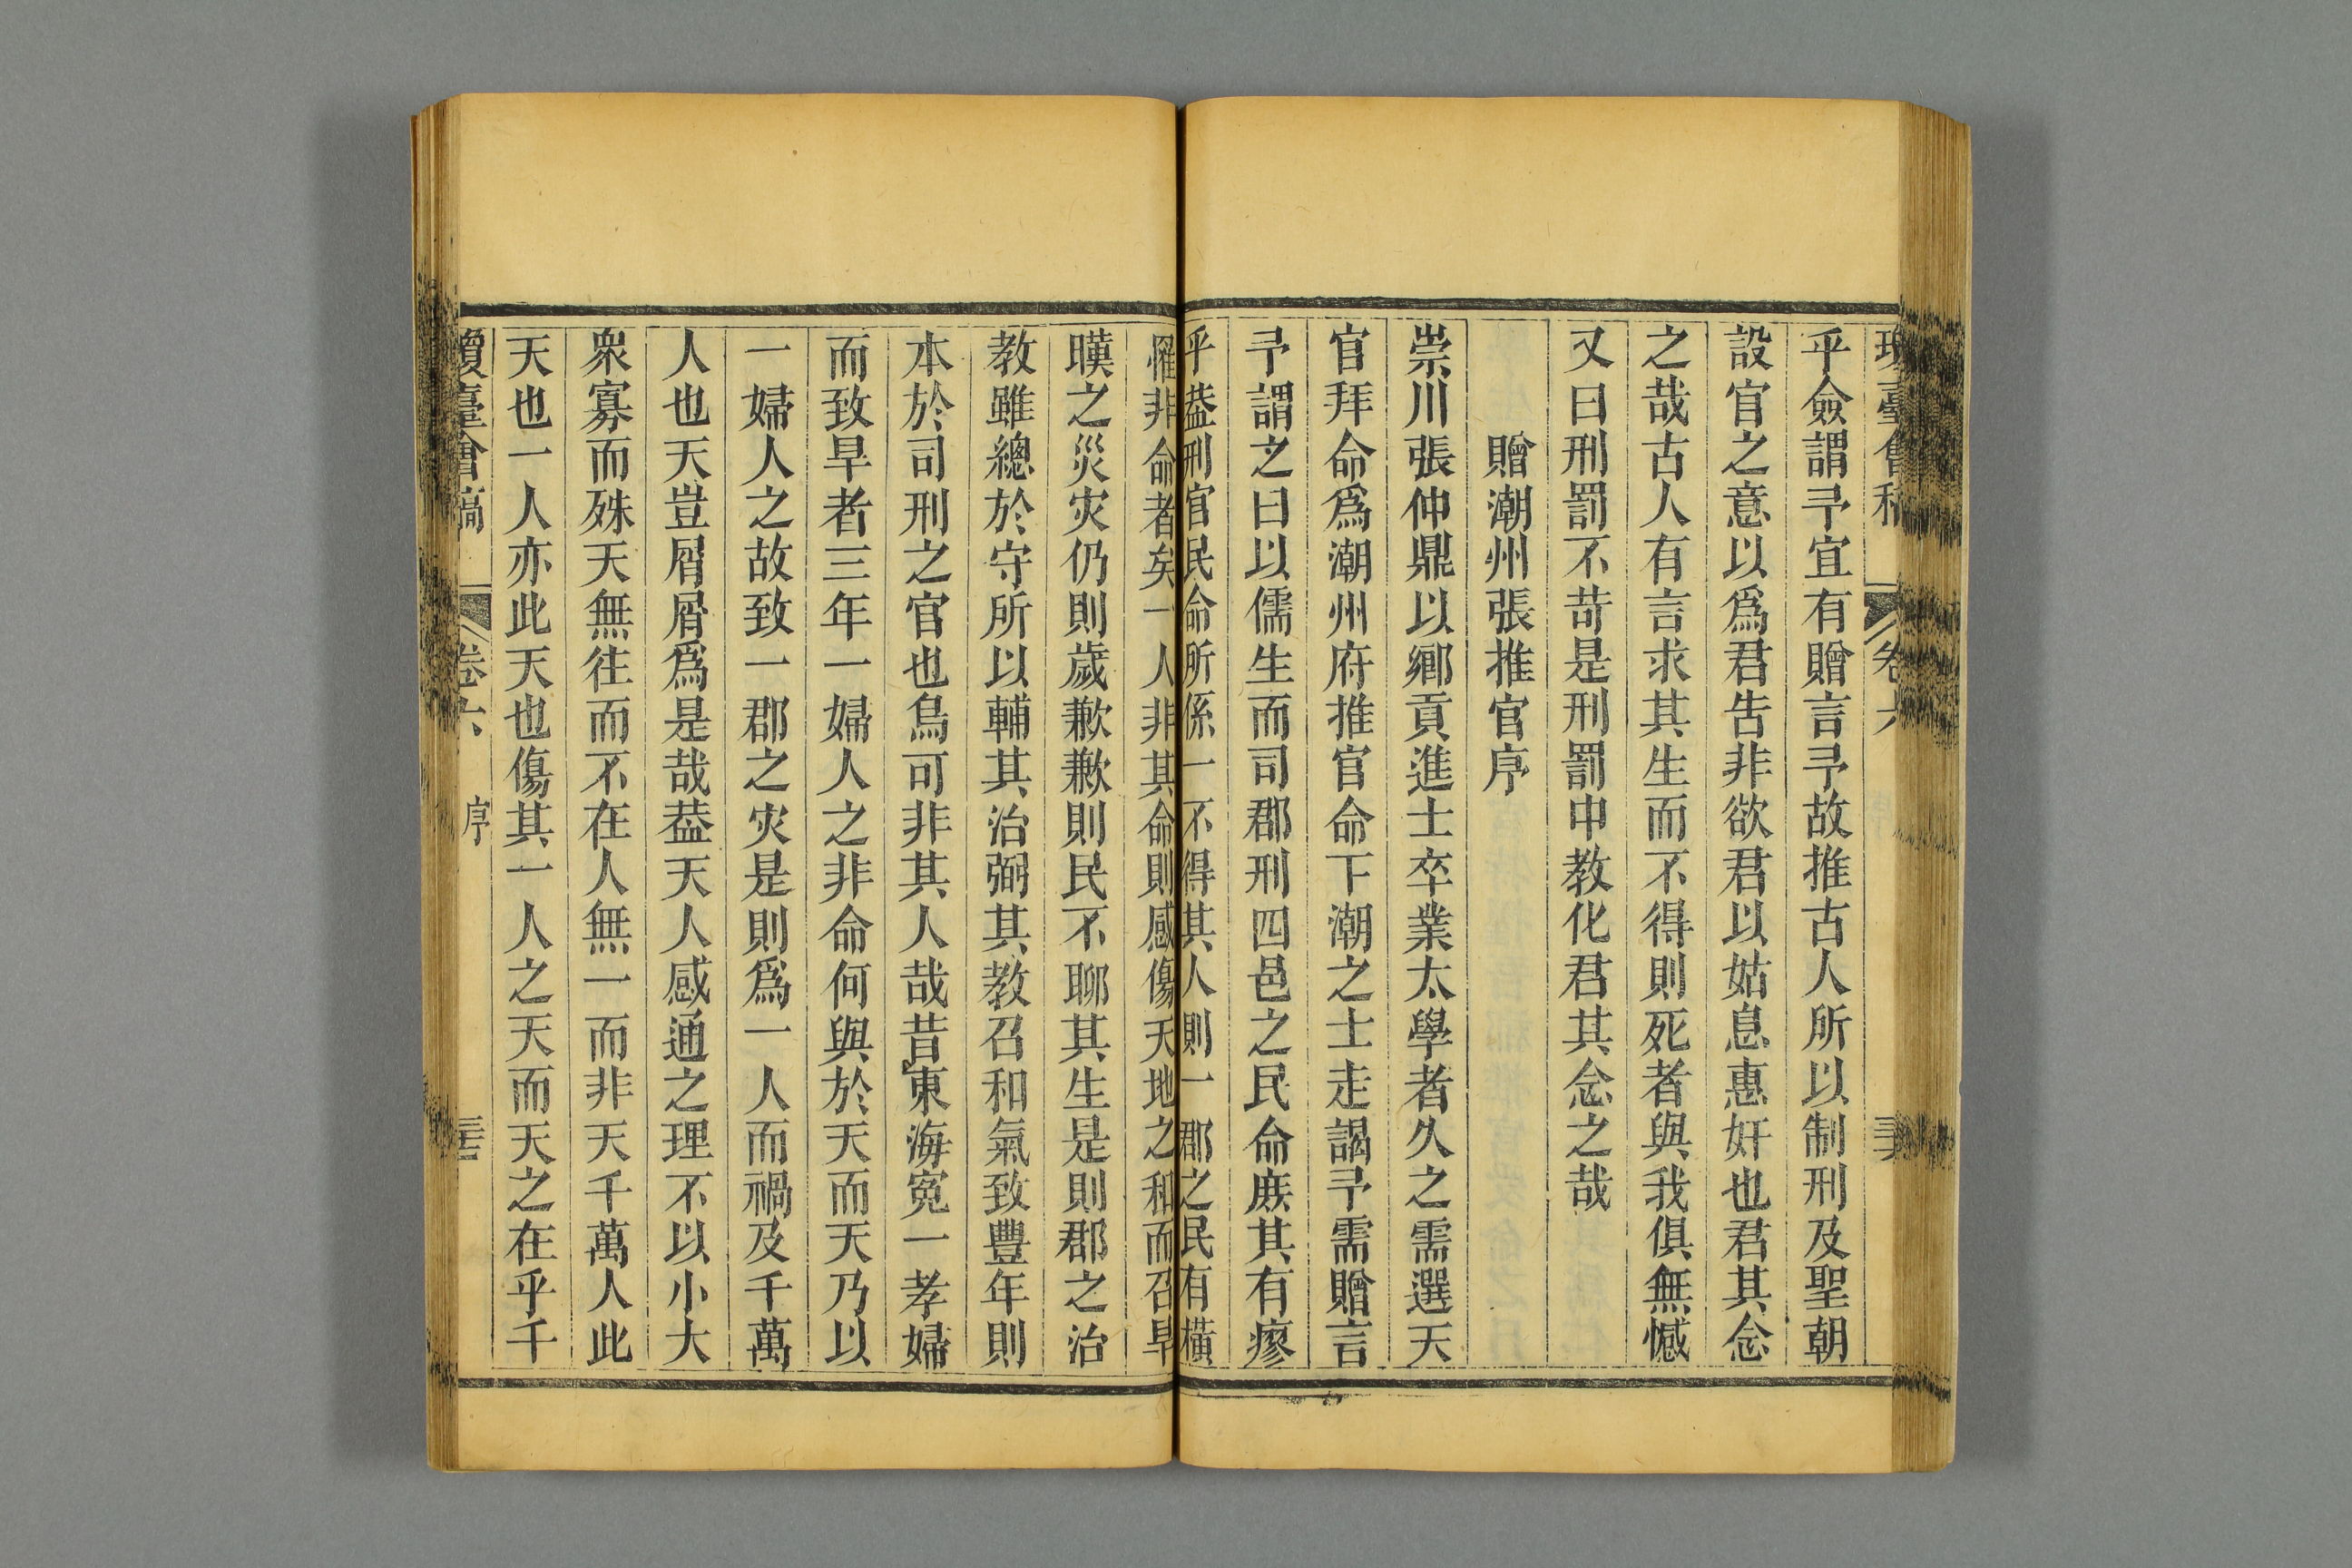 瓊臺會稿 卷六
乎僉謂予宜有贈言予故推古人所以制刑及聖朝
設官之意以爲君告非欲君以姑息惠奸也君其念
之哉古人有言求其生而不得則死者與我俱無憾
又曰刑罰不苛是刑罰中教化君其念之哉
贈潮州張推官序
崇川張仲鼎以鄉貢進士卒業太學者久之需選天
官拜命爲潮州府推官命下潮之士走謁予需贈言
予謂之曰以儒生而司郡刑四邑之民命庶其有瘳
乎葢刑官民命所係一不得其人則一郡之民有橫
罹非命者矣一人非其命則感傷天地之和而召旱
暵之災灾仍則歲歉歉則民不聊其生是則郡之治
教雖總於守所以輔其治弼其教召和氣致豐年則
本於司刑之官也烏可非其人哉昔東海寃一孝婦
而致旱者三年一婦人之非命何與於天而天乃以
一婦人之故致一郡之灾是則爲一人而禍及千萬
人也天豈屑屑爲是哉葢天人感通之理不以小大
衆寡而殊天無往而不在人無一而非天千萬人此
天也一人亦此天也傷其一人之天而天之在乎千
瓊臺會稿 卷六 序